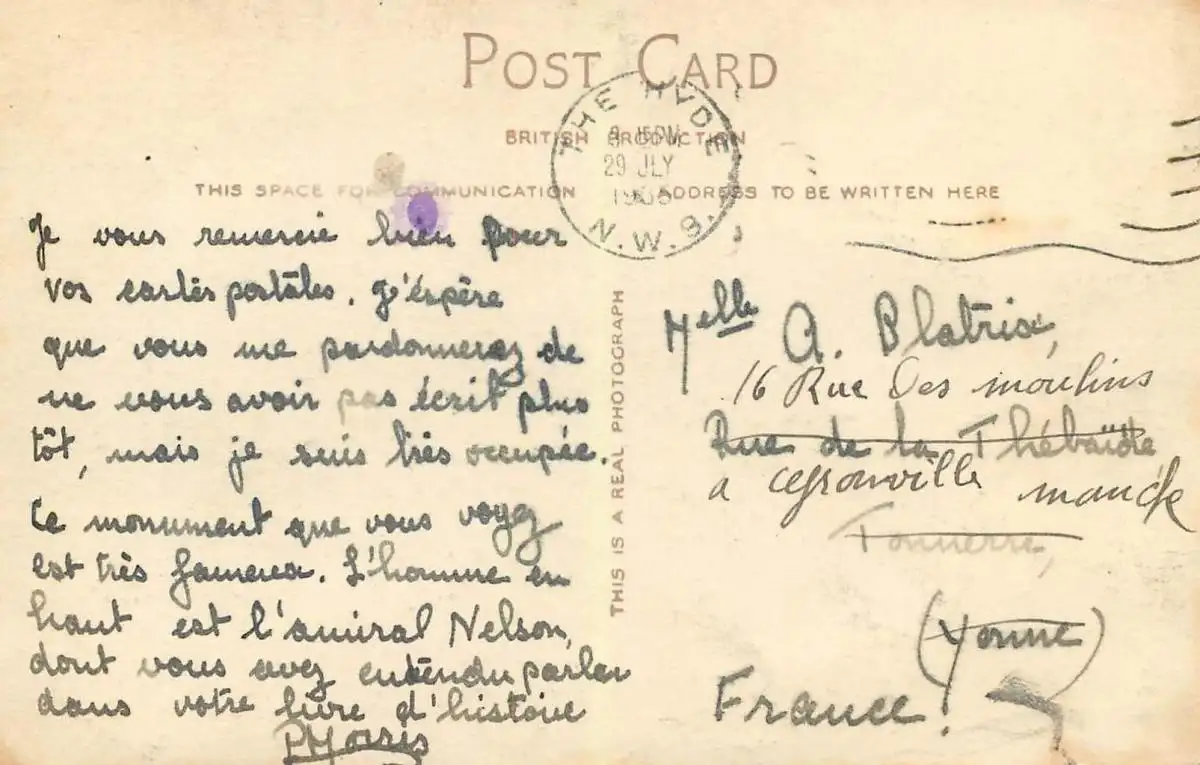 POST CARD
BRITISH PRODUCTION
THIS SPACE FOR COMMUNICATION ADDRESS TO BE WRITTEN HERE
THE HYDE
29 JLY
N.W.9.
Je vous remercie bien pour
vos cartes postales. J'éspère
que vous me pardonnerez de
ne vous avoir pas écrit plus
tôt, mais je suis très occupée.
Ce monument que vous voyez
est très fameux. L'homme en
haut est l'amiral Nelson,
dont vous avez entendu parler
dans votre livre d'histoire
PMorris
THIS IS A REAL PHOTOGRAPH
Melle A. Blatrix,
16 Rue Des moulins
Rue de la Thébaïde,
a manche
Tonnerre,
(Yonne)
France.